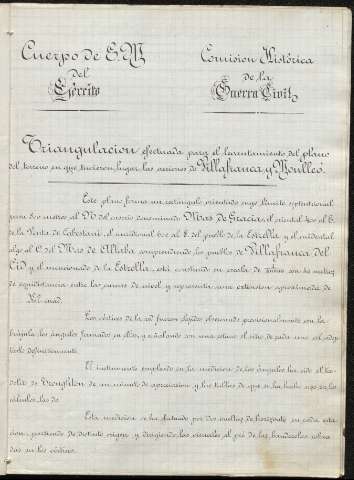 Cuerpo de E. M.
del
Ejército
Comision Histórica
de la
Guerra Civil
Triangulacion efectuada para el levantamiento del plano
del terreno en que tuvieron lugar las acciones de Villafranca y Monlleó.
Este plano forma un rectángulo orientado cuyo límite septentrional
pasa 300 metros al N. del caserio denominado Mas de Gracia, el oriental 400 al E.
de la Venta de Cabestani, el meridional 600 al S. del pueblo de la Estrella y el occidental
algo al O. del Mas de Altaba comprendiendo los pueblos de Villafranca del
Cid y el mencionado de la Estrella; está construido en escala de con 20 metros
de equidistancia entre las curvas de nivel y representa una extension aproximada de
Los vértices de la red fueron elegidos observando provisionalmente con la
brújula los ángulos formados en ellos, y señalando con una estaca el sitio de cada uno al adop-
tarlo definitivamente.
El instrumento empleado en la medicion de los ángulos ha sido el teo-
dolito de Troughton de un minuto de apreciacion y las tablas de que se ha hecho uso en los
cálculos, las de
Esta medicion se ha efectuado por dos vueltas de horizonte en cada esta-
cion, partiendo de distinto origen y dirigiendo las visuales al pié de las banderolas coloca-
das en los vértices.